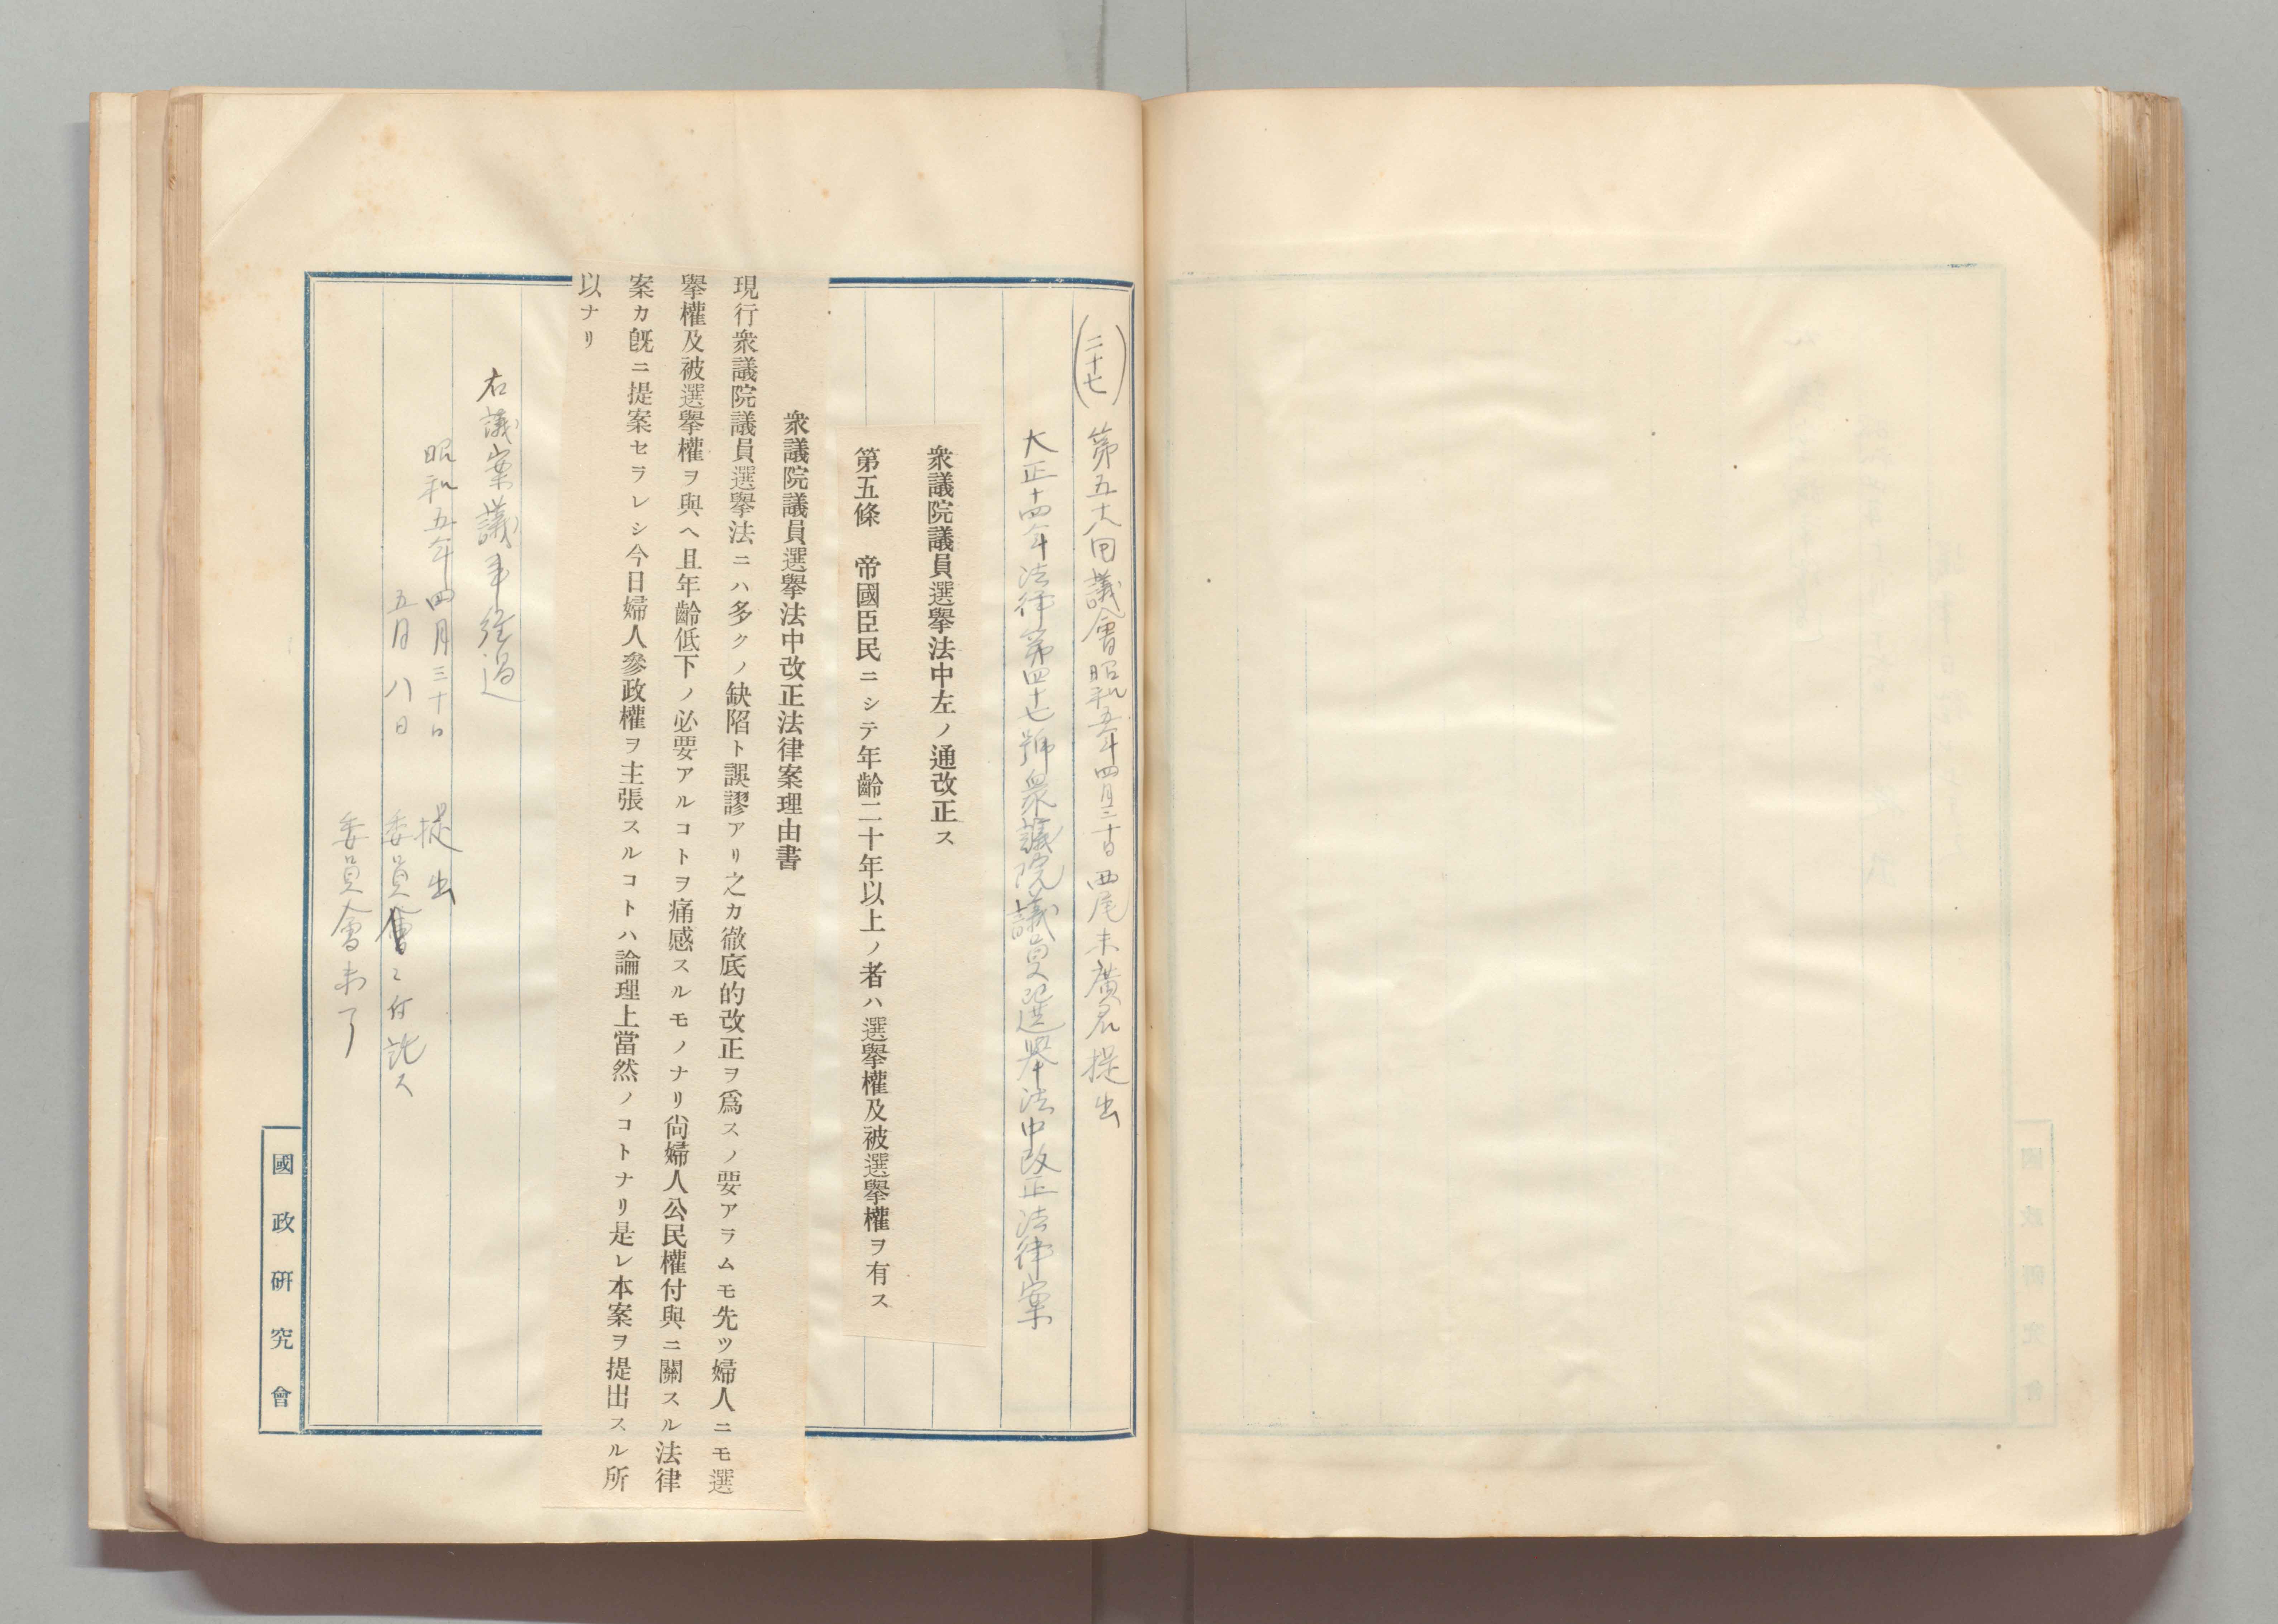 (二十七) 第五十八回議會昭和五年四月三十日西尾末廣君提出
大正十四年法律第四十七號衆議院議員選擧法中改正法律案
衆議院議員選擧法中左ノ通改正ス
第五條　帝國臣民ニシテ年齡二十年以上ノ者ハ選擧權及被選擧權ヲ有ス
衆議院議員選擧法中改正法律案理由書
現行衆議院議員選擧法ニハ多クノ缺陷ト誤謬アリ之カ徹底的改正ヲ爲スノ要アラムモ先ツ婦人ニモ選
擧權及被選擧權ヲ與ヘ且年齡低下ノ必要アルコトヲ痛感スルモノナリ尙婦人公民權付與ニ關スル法律
案カ旣ニ提案セラレシ今日婦人參政權ヲ主張スルコトハ論理上當然ノコトナリ是レ本案ヲ提出スル所
以ナリ
右議案議事經過
昭和五年四月三十日　提出
五月八日　委員會ニ付託ス
委員會未了
國政硏究會